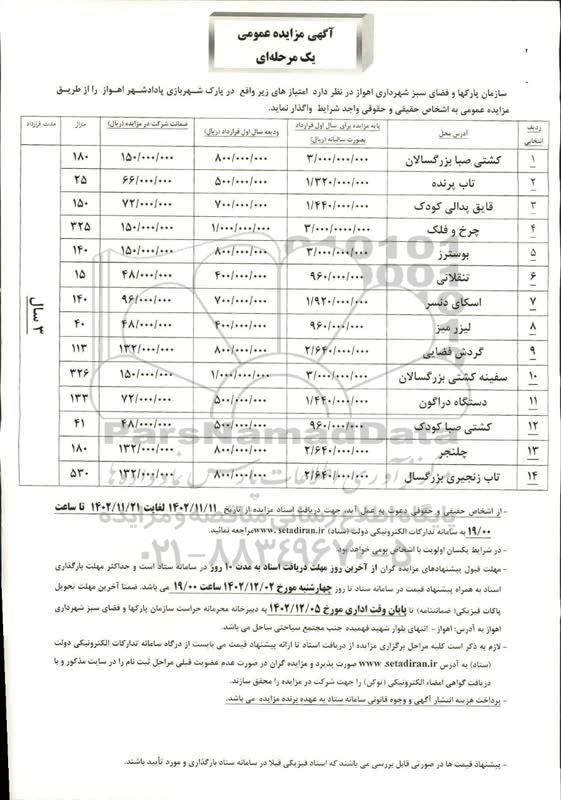 آگهی مزایده عمومی
یک مرحله‌ای
سازمان پارکها و فضای سبز شهرداری اهواز در نظر دارد امتیاز های زیر واقع در پارک شهربازی پادادشهر اهواز را از طریق
مزایده عمومی به اشخاص حقیقی و حقوقی واجد شرایط واگذار نماید.
ردیف انتخابی | آدرس محل | پایه مزایده برای سال اول قرارداد بصورت سالیانه (ریال) | ودیعه سال اول قرارداد (ریال) | ضمانت شرکت در مزایده (ریال) | متراژ | مدت قرارداد
۱ | کشتی صبا بزرگسالان | ۳/۰۰۰/۰۰۰/۰۰۰ | ۸۰۰/۰۰۰/۰۰۰ | ۱۵۰/۰۰۰/۰۰۰ | ۱۸۰
۲ | تاب پرنده | ۱/۳۲۰/۰۰۰/۰۰۰ | ۵۰۰/۰۰۰/۰۰۰ | ۶۶/۰۰۰/۰۰۰ | ۲۵
۳ | قایق پدالی کودک | ۱/۴۴۰/۰۰۰/۰۰۰ | ۷۰۰/۰۰۰/۰۰۰ | ۷۲/۰۰۰/۰۰۰ | ۱۵۰
۴ | چرخ و فلک | ۳/۰۰۰/۰۰۰۰/۰۰۰ | ۱/۰۰۰/۰۰۰/۰۰۰ | ۱۵۰/۰۰۰/۰۰۰ | ۳۲۵
۵ | بوسترز | ۳/۰۰۰/۰۰۰/۰۰۰ | ۸۰۰/۰۰۰/۰۰۰ | ۱۵۰/۰۰۰/۰۰۰ | ۱۴۰
۶ | تنقلاتی | ۹۶۰/۰۰۰/۰۰۰ | ۴۰۰/۰۰۰/۰۰۰ | ۴۸/۰۰۰/۰۰۰ | ۱۵
۷ | اسکای دنسر | ۱/۹۲۰/۰۰۰/۰۰۰ | ۷۰۰/۰۰۰/۰۰۰ | ۹۶/۰۰۰/۰۰۰ | ۱۴۰
۸ | لیزر میز | ۹۶۰/۰۰۰/۰۰۰ | ۴۰۰/۰۰۰/۰۰۰ | ۴۸/۰۰۰/۰۰۰ | ۴۰
۹ | گردش فضایی | ۲/۶۴۰/۰۰۰/۰۰۰ | ۸۰۰/۰۰۰/۰۰۰ | ۱۳۲/۰۰۰/۰۰۰ | ۱۱۳
۱۰ | سفینه کشتی بزرگسالان | ۳/۰۰۰/۰۰۰/۰۰۰ | ۱/۰۰۰/۰۰۰/۰۰۰ | ۱۵۰/۰۰۰/۰۰۰ | ۳۲۶
۱۱ | دستگاه دراگون | ۱/۴۴۰/۰۰۰/۰۰۰ | ۵۰۰/۰۰۰/۰۰۰ | ۷۲/۰۰۰/۰۰۰ | ۱۳۳
۱۲ | کشتی صبا کودک | ۹۶۰/۰۰۰/۰۰۰ | ۵۰۰/۰۰۰/۰۰۰ | ۴۸/۰۰۰/۰۰۰ | ۴۱
۱۳ | چلنجر | ۲/۶۴۰/۰۰۰/۰۰۰ | ۸۰۰/۰۰۰/۰۰۰ | ۱۳۲/۰۰۰/۰۰۰ | ۱۸۰
۱۴ | تاب زنجیری بزرگسال | ۲/۶۴۰/۰۰۰/۰۰۰ | ۸۰۰/۰۰۰/۰۰۰ | ۱۳۲/۰۰۰/۰۰۰ | ۵۳۰
۳ سال
ParsNamadData
۰۲۱-۸۸۳۴۹۶۷۰-۵
- از اشخاص حقیقی و حقوقی دعوت به عمل آید، جهت دریافت اسناد مزایده از تاریخ ۱۴۰۲/۱۱/۱۱ لغایت ۱۴۰۲/۱۱/۲۱ تا ساعت
۱۹/۰۰ به سامانه تدارکات الکترونیکی دولت (ستاد) www.setadiran.ir مراجعه نمائید.
- در شرایط یکسان اولویت با اشخاص بومی خواهد بود.
- مهلت قبول پیشنهادهای مزایده گران از آخرین روز مهلت دریافت اسناد به مدت ۱۰ روز در سامانه ستاد است و حداکثر مهلت بارگذاری
اسناد به همراه پیشنهاد قیمت در سامانه ستاد تا روز چهارشنبه مورخ ۱۴۰۲/۱۲/۰۲ ساعت ۱۹/۰۰ می باشد. ضمنا آخرین مهلت تحویل
پاکات فیزیکی( ضمانتنامه) تا پایان وقت اداری مورخ ۱۴۰۲/۱۲/۰۵ به دبیرخانه محرمانه حراست سازمان پارکها و فضای سبز شهرداری
اهواز به آدرس: اهواز - انتهای بلوار شهید فهمیده جنب مجتمع سیاحتی ساحل می باشد.
- لازم به ذکر است کلیه مراحل برگزاری مزایده از دریافت اسناد تا ارائه پیشنهاد قیمت می بایست از درگاه سامانه تدارکات الکترونیکی دولت
(ستاد) به آدرس www.setadiran.ir صورت پذیرد و مزایده گران در صورت عدم عضویت قبلی مراحل ثبت نام را در سایت مذکور و با
دریافت گواهی امضاء الکترونیکی (توکن) را جهت شرکت در مزایده را محقق سازند.
- پرداخت هزینه انتشار آگهی و وجوه قانونی سامانه ستاد به عهده برنده مزایده می باشد.
- پیشنهاد قیمت ها در صورتی قابل بررسی می باشند که اسناد فیزیکی قبلا در سامانه ستاد بارگذاری و مورد تأیید باشند.